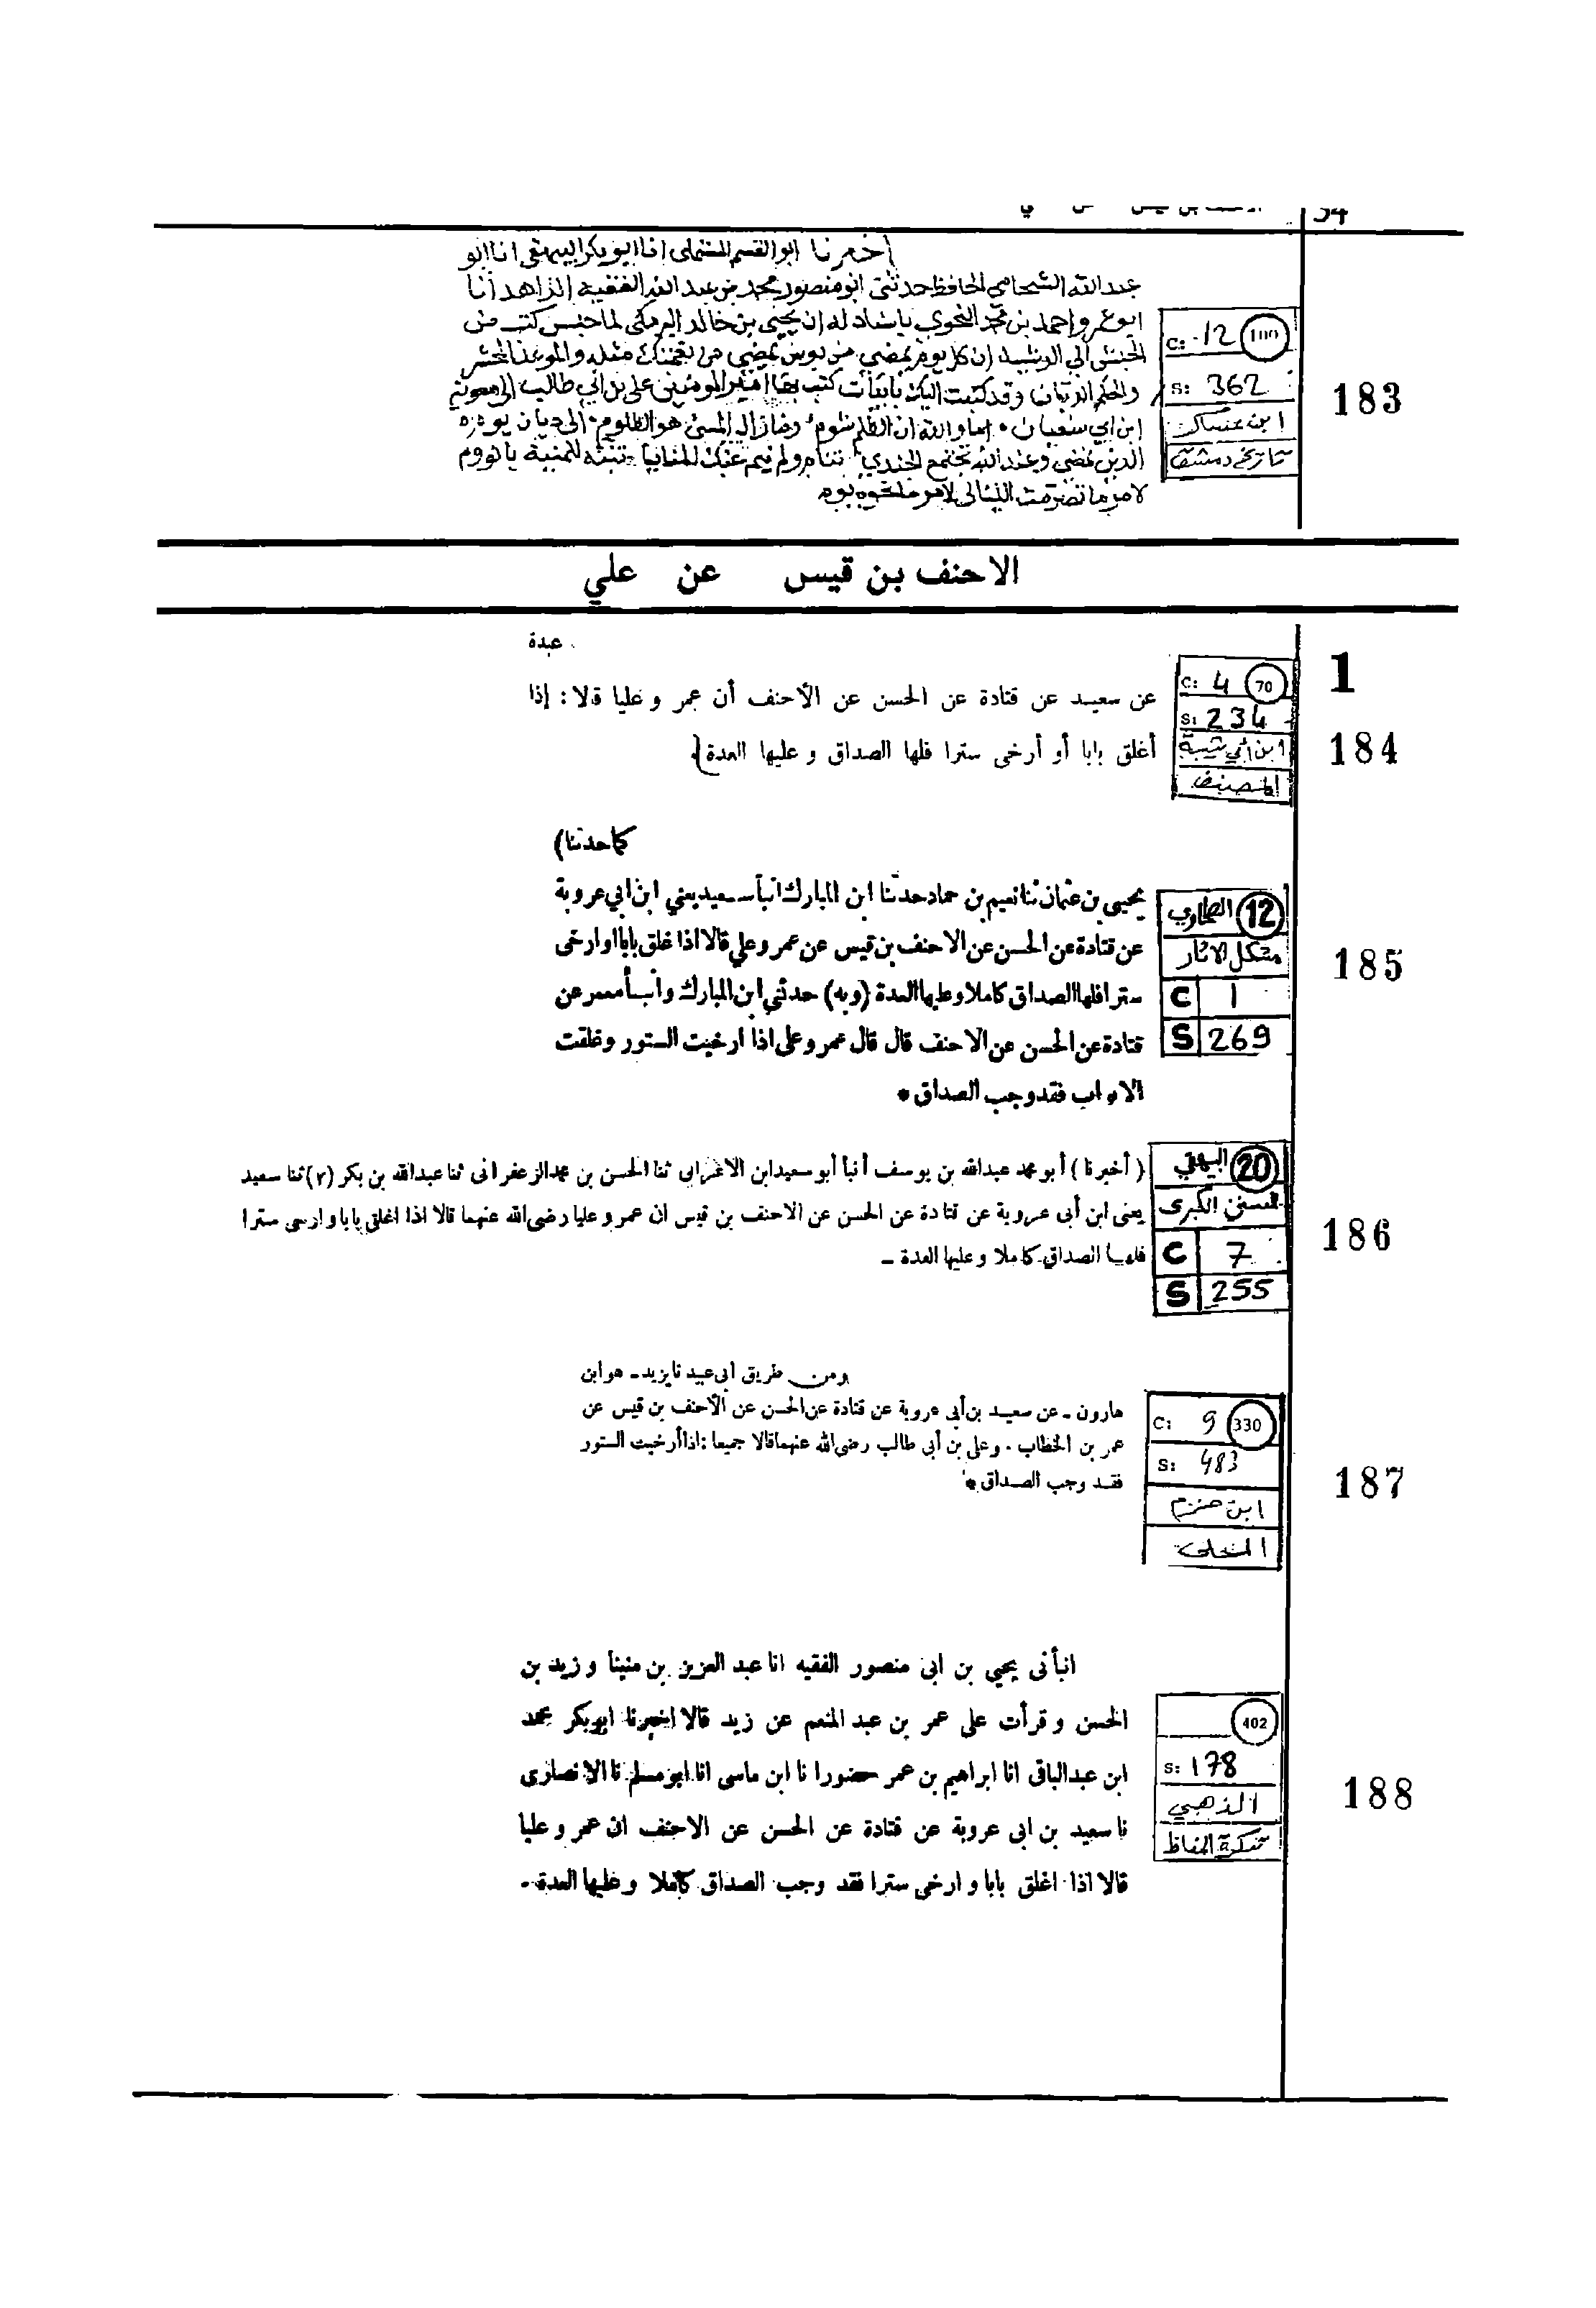 54
أخبرنا ابو القسم المستملى انا ابو بكر البيهقى انا ابو
عبد الله الحافظ حدثنى ابو منصور محمد بن عبد الله الفقيه الزاهد انا
ابو عمرو احمد بن محمد النحوي باسناد له ان يحيى بن خالد البرمكى لما حبس كتب من
الحبس الى الرشيد ان كل يوم يمضي من بوسى يمضي من نعمتك مثله والموعد المحشر
والحكم الديان وقد كتبت اليك بابيات كتب بها امير المومنين على بن ابي طالب الى معوية
ابن ابي سفيان اما والله ان الظلم شوم وما زال المسئ هو الظلوم الى ديان يوم
الدين نمضي وعند الله تجتمع الخصوم تنام ولم تنم عنك المنايا تنبه للمنية يا نووم
لامر ما تصرمت الليالى لامر ما
C: 12
S: 362
ابن عساكر
تاريخ دمشق
183
الاحنف بن قيس عن علي
عبدة
عن سعيد عن قتادة عن الحسن عن الأحنف أن عمر و عليا قالا : إذا
أغلق بابا أو أرخى سترا فلها الصداق و عليها العدة
C: 4 70
S: 234
ابن أبي شيبة
المصنف
1
184
كما حدثنا)
يحيى بن عثمان ثنا نعيم بن حماد حدثنا ابن المبارك انبأ سعيد يعني ابن ابي عروبة
عن قتادة عن الحسن عن الاحنف بن قيس عن عمر وعلي قالا اذا غلق بابا او ارخى
سترا فلها الصداق كاملا وعليها العدة (وبه) حدثني ابن المبارك وأنبأ معمر عن
قتادة عن الحسن عن الاحنف قال قال عمر وعلى اذا ارخيت الستور وغلقت
الابواب فقد وجب الصداق *
12 الطحاوي
مشكل الاثار
C 1
S 269
185
( أخبرنا ) أبو محمد عبدالله بن يوسف أنبأ أبو سعيد ابن الاعرابى ثنا الحسن بن محمد الزعفرانى ثنا عبدالله بن بكر (٢) ثنا سعيد
يعنى ابن أبى عروبة عن قتادة عن الحسن عن الاحنف بن قيس ان عمر و عليا رضى الله عنهما قالا اذا اغلق بابا و ارخى سترا
فلها الصداق كاملا و عليها العدة ــ
20 البيهقي
السنن الكبرى
C 7
S 255
186
ومن طريق أبى عبيد نا يزيد ــ هو ابن
هارون ــ عن سعيد بن أبى عروبة عن قتادة عن الحسن عن الأحنف بن قيس عن
عمر بن الخطاب . وعلى بن أبى طالب رضى الله عنهما قالا جميعا : اذا أرخيت الستور
فقد وجب الصداق *
C: 9 330
S: 483
ابن حزم
المحلى
187
انبأنى يحيى بن ابى منصور الفقيه انا عبد العزيز بن منينا و زيد بن
الحسن و قرأت على عمر بن عبد المنعم عن زيد قالا اخبرنا ابو بكر محمد
ابن عبدالباقى انا ابراهيم بن عمر حضورا نا ابن ماسى انا ابو مسلم نا الانصارى
نا سعيد بن ابى عروبة عن قتادة عن الحسن عن الاحنف ان عمر و عليا
قالا اذا اغلق بابا و ارخى سترا فقد وجب الصداق كاملا و عليها العدة ــ
402
S: 178
الذهبي
تذكرة الحفاظ
188